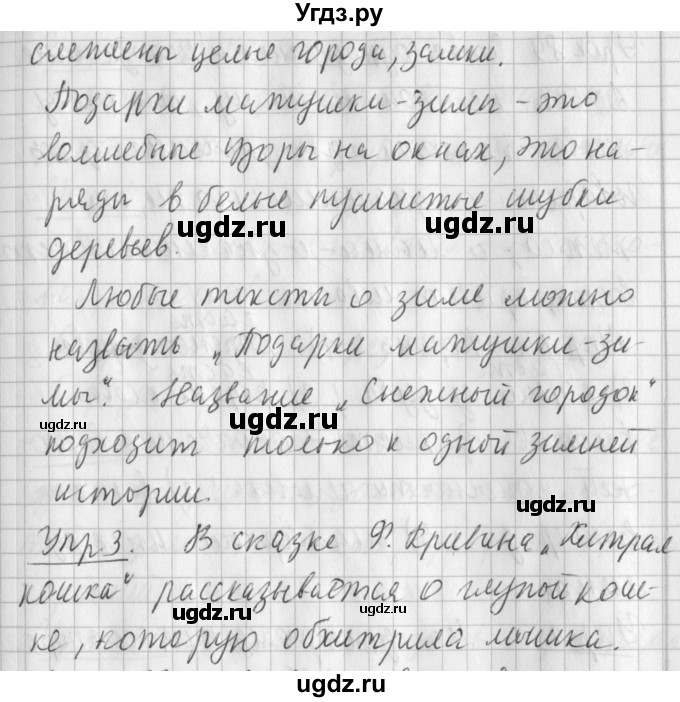 Угдз.ру
слеплены целые города, замки.
Подарки матушки-зимы - это
волшебные узоры на окнах, это на-
ряды в белые пушистые шубки
ugdz.ru
ugdz.ru
деревьев.
Любые тексты о зиме можно
назвать „Подарки матушки-зи-
ugdz.ru
мы". Название „Снежный городок"
ugdz.ru
ugdz.ru
подходит только к одной зимней
истории.
ugdz.ru
Упр. 3. В сказке Ф. Кривина „Хитрая
кошка" рассказывается о глупой кош-
ugdz.ru
ugdz.ru
ке, которую обхитрила мышка.
ugdz.ru